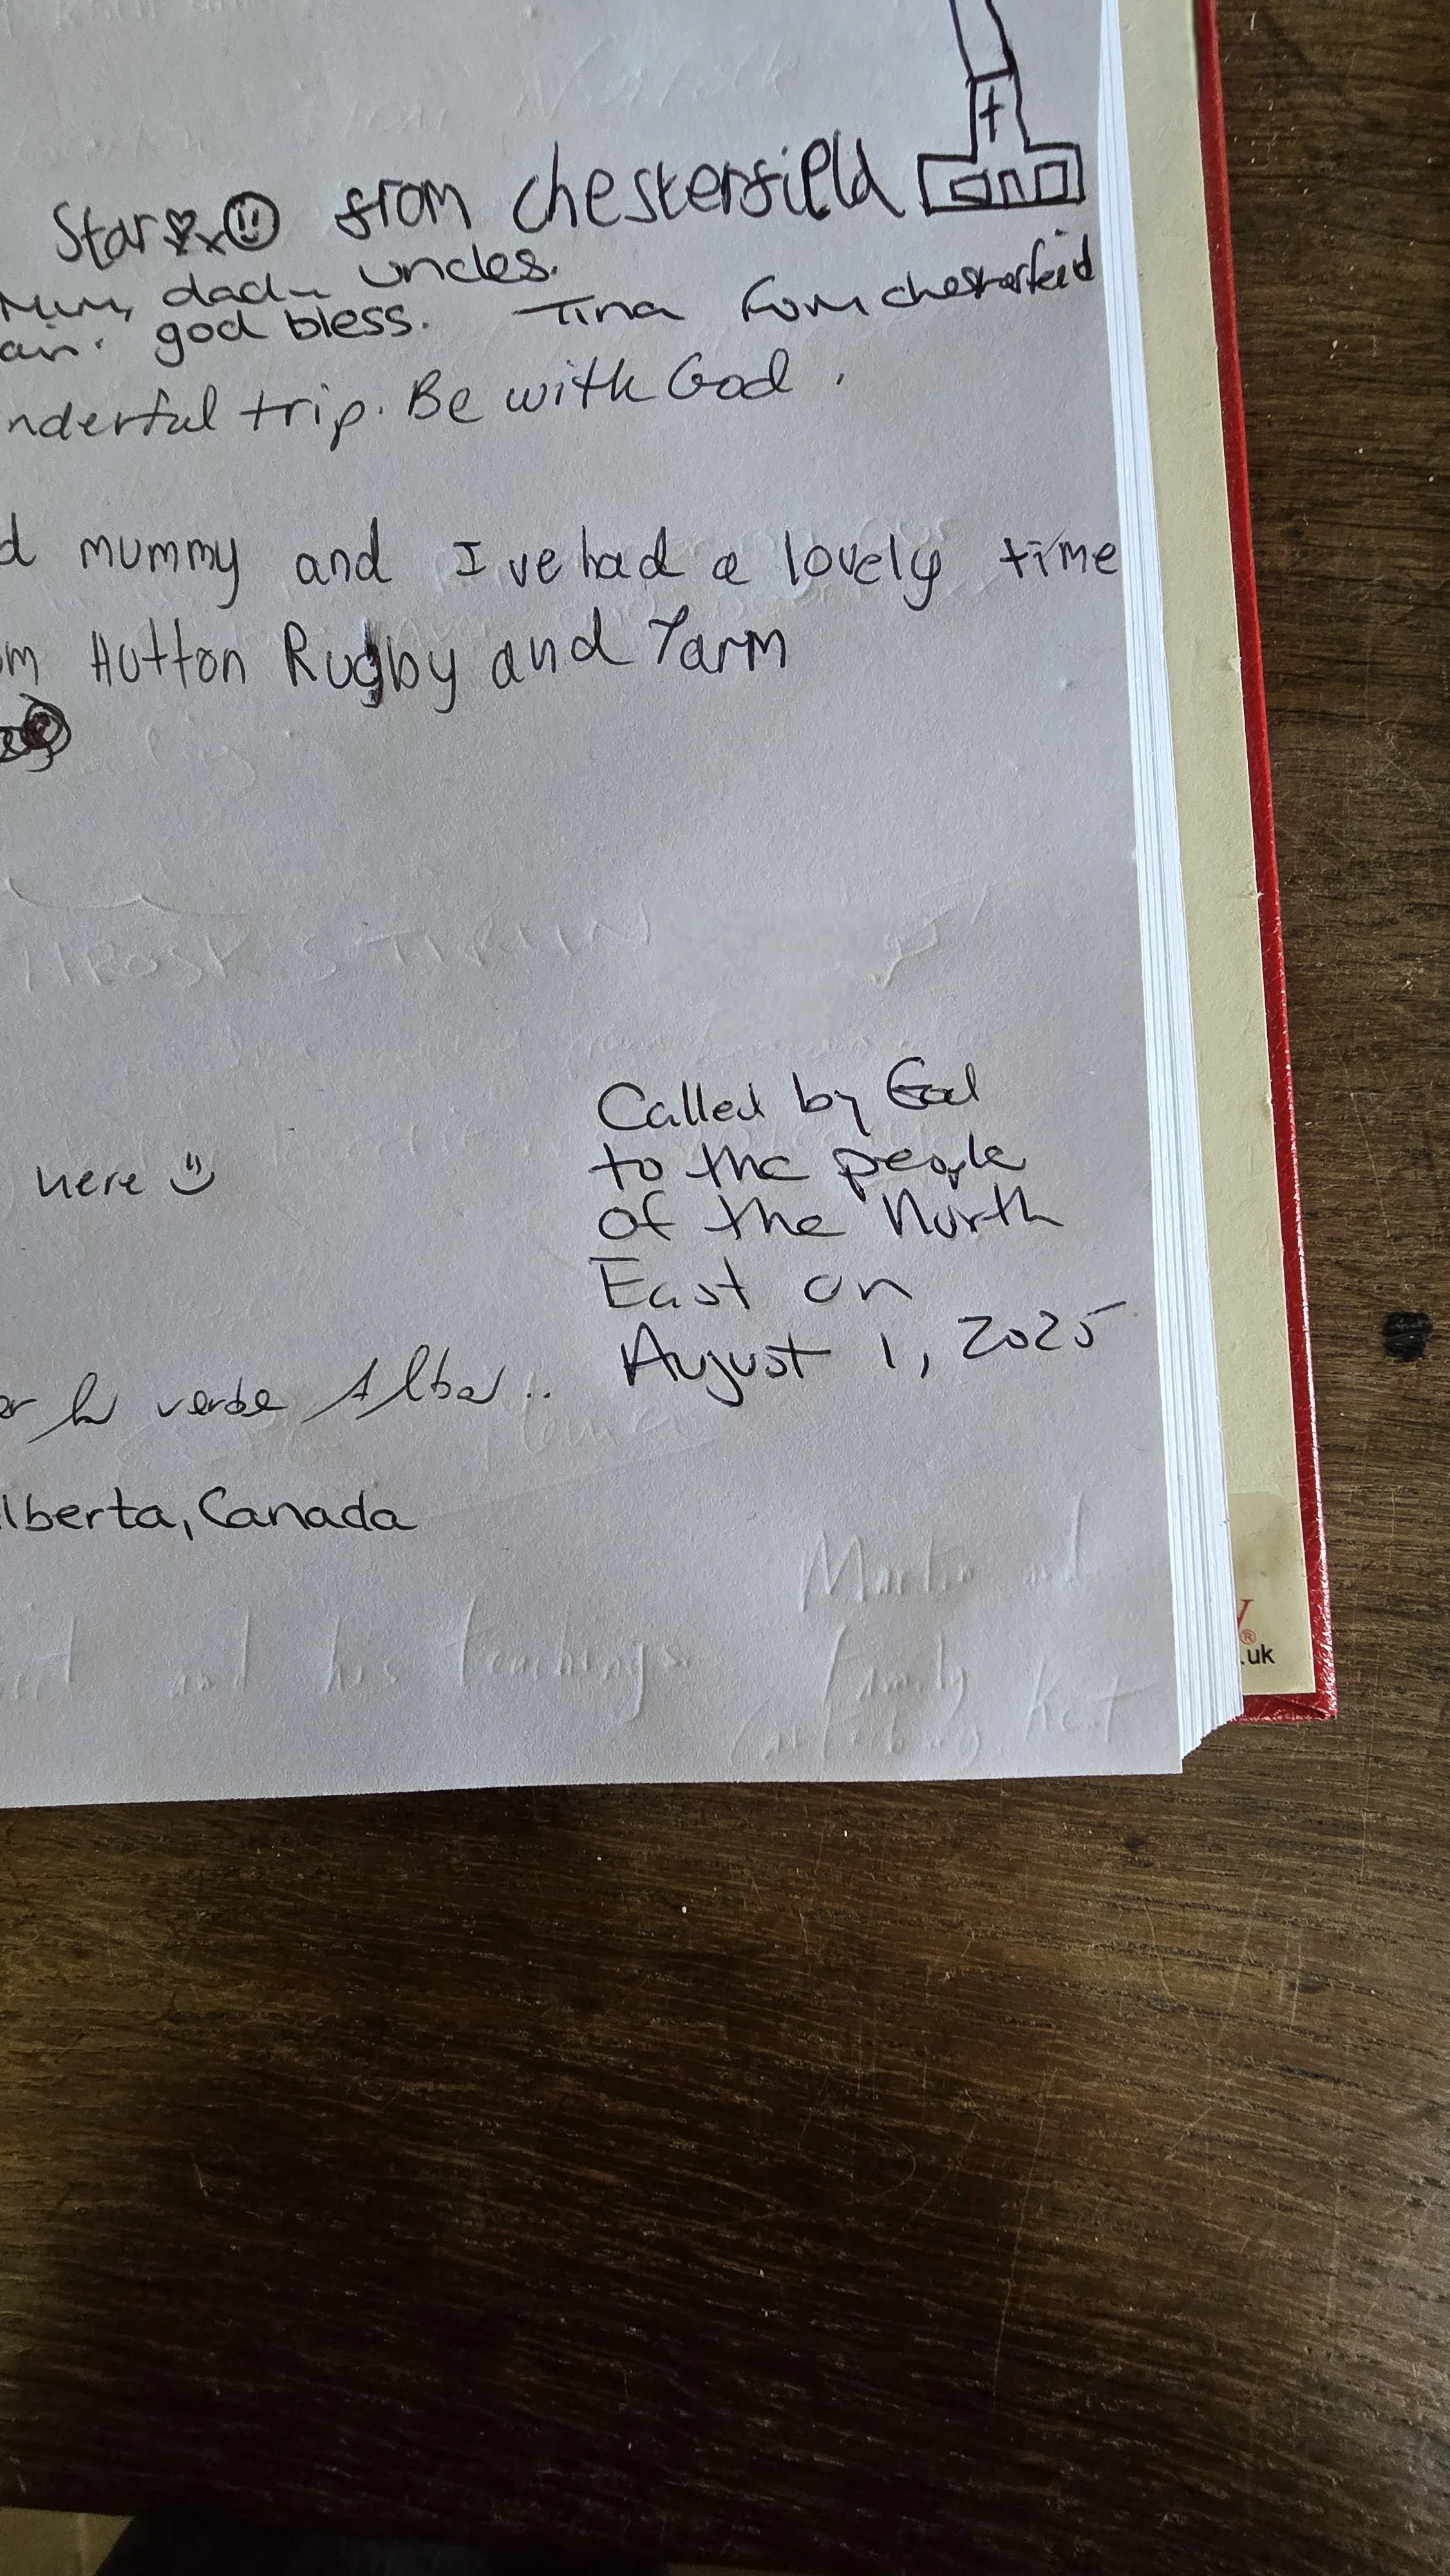 Star from Chesterfield
Mum, dad uncles.
god bless. Tina from chesterfeid
nderful trip. Be with God.
d mummy and I've had a lovely time
om Hutton Rugby and Yarm
Called by God
to the people
here
of the North
East on
August 1, 2025
verbe
lberta, Canada
and his teachings
Family Kent
.uk